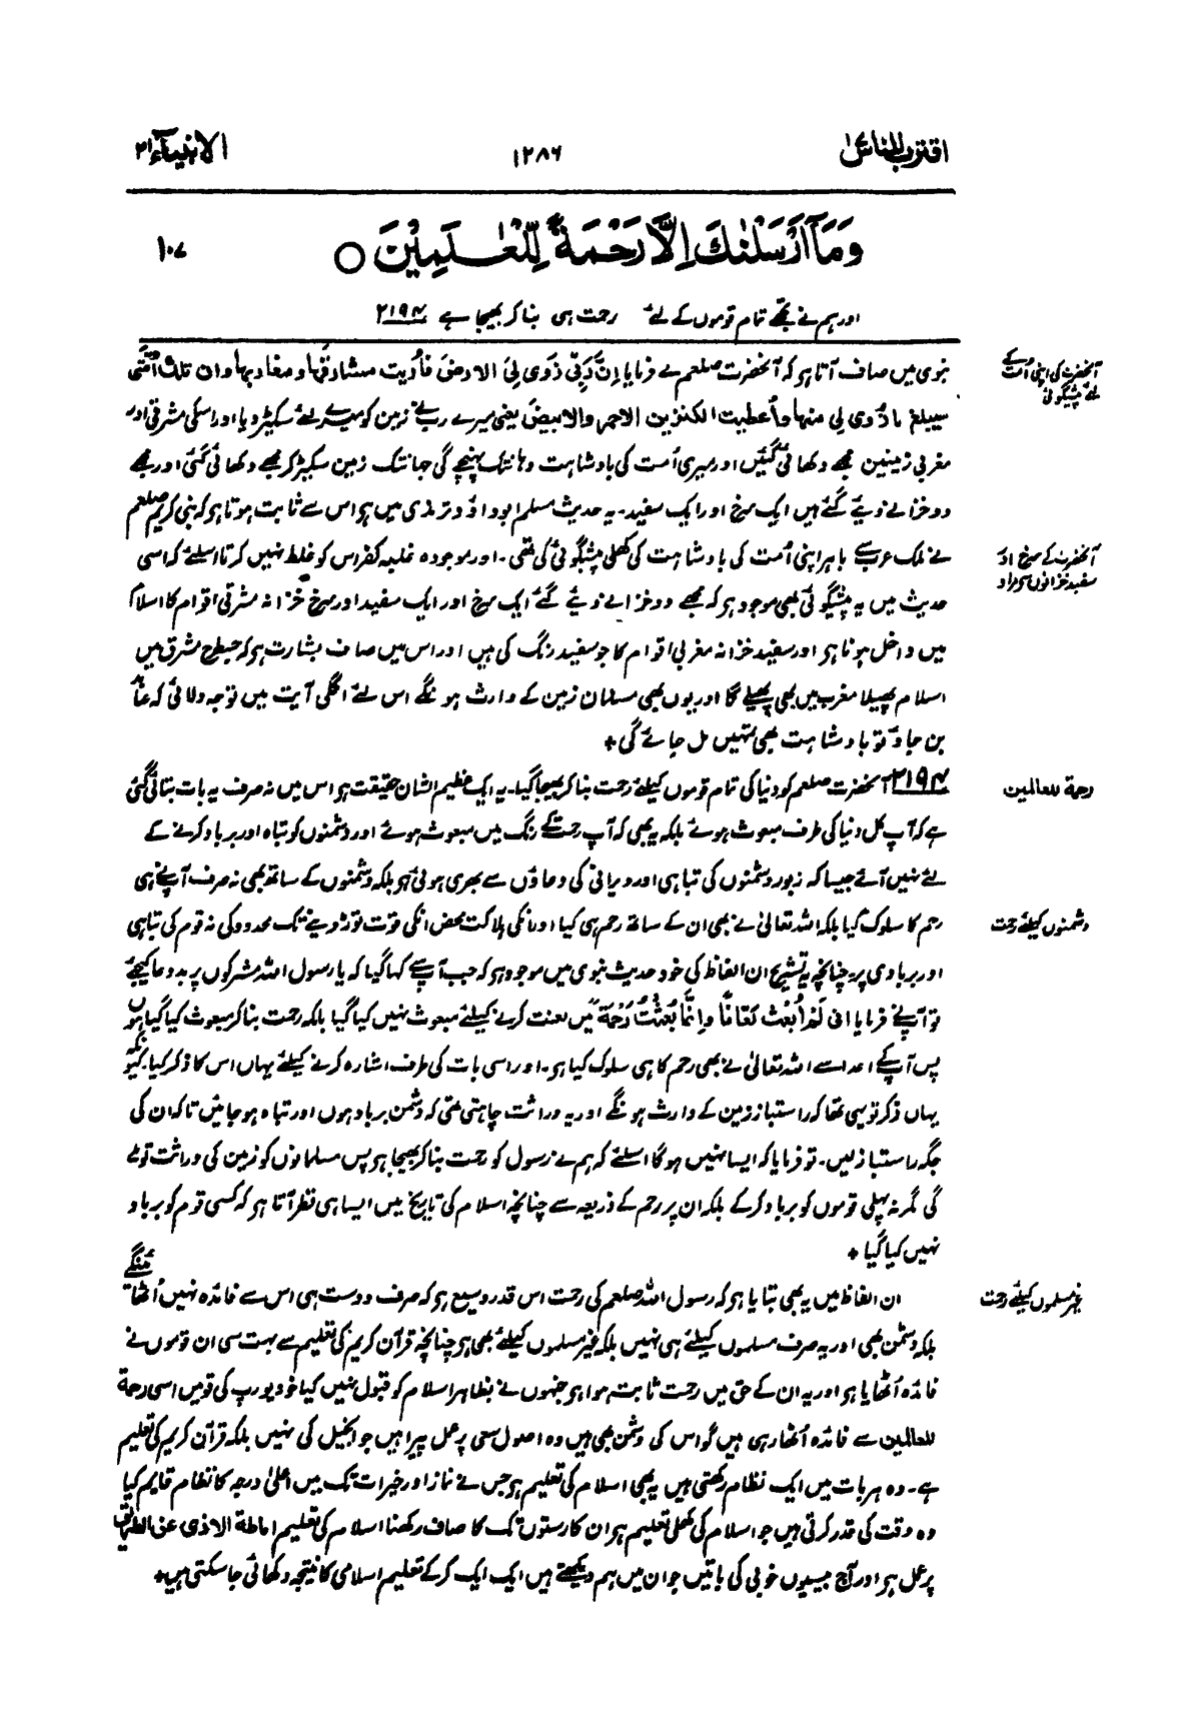 اقترب للناس ۱۷
۱۲۸۶
الانبیاء ۲۱
وَمَآ اَرْسَلْنٰكَ اِلَّا رَحْمَةً لِّلْعٰلَمِيْنَ ○
۱۰۷
اور ہم نے تجھے تمام قوموں کے لئے رحمت ہی بنا کر بھیجا ہے ۲۱۹۴
آنحضرت کی اپنی امت کے
لئے پیشگوئی
نبوی میں صاف آتا ہو کہ آنحضرت صلعم نے فرمایا اِنَّ رَبِّیْ زَوٰی لِیَ الارضَ فأریت مشارقها ومغاربها وان تلك اُمّتی
سیبلغ ما زُوی لی منها واُعطیت الکنزین الاحمر والابیض یعنی میرے رب نے زمین کو میرے لئے سکیڑ دیا اور اسکی مشرقی اور
مغربی زمینین مجھے دکھائی گئیں اور میری اُمت کی بادشاہت وہانتک پہنچے گی جہانتک زمین سکیڑ کر مجھے دکھائی گئی اور مجھے
دو خزانے دیئے گئے ہیں ایک سرخ اور ایک سفید۔ یہ حدیث مسلم ابو داؤد ترمذی میں ہو اس سے ثابت ہوتا ہو کہ نبی کریم صلعم
آنحضرت کے سرخ اور
سفید خزانوں سے مراد
نے ملک عرب سے باہر اپنی اُمت کی بادشاہت کی کھلی پیشگوئی کی تھی۔ اور موجودہ غلبہ کفر اس کو غلط نہیں کرتا اسلئے کہ اسی
حدیث میں یہ پیشگوئی بھی موجود ہو کہ مجھے دو خزانے دیئے گئے ایک سرخ اور ایک سفید اور سرخ خزانہ مشرقی اقوام کا اسلام
میں داخل ہونا ہو اور سفید خزانہ مغربی اقوام کا جو سفید رنگ کی ہیں اور اس میں صاف بشارت ہو کہ جسطرح مشرق میں
اسلام پھیلا مغرب میں بھی پھیلے گا اور یوں بھی مسلمان زمین کے وارث ہونگے اس لئے اگلی آیت میں توجہ دلائی کہ عابد
بن جاؤ تو بادشاہت بھی تمہیں مل جائے گی +
رحمة للعالمین
۲۱۹۴ آنحضرت صلعم کو دنیا کی تمام قوموں کیلئے رحمت بنا کر بھیجا گیا۔ یہ ایک عظیم الشان حقیقت ہو اس میں نہ صرف یہ بات بتائی گئی
ہے کہ آپ کل دنیا کی طرف مبعوث ہوئے بلکہ یہ بھی کہ آپ رحمت کے رنگ میں مبعوث ہوئے اور دشمنوں کو تباہ اور برباد کرنے کے
لئے نہیں آئے جیسا کہ زبور دشمنوں کی تباہی اور ویرانی کی دعاؤں سے بھری ہوئی ہو بلکہ دشمنوں کے ساتھ بھی نہ صرف آپنے ہی
دشمنوں کیلئے رحمت
رحم کا سلوک کیا بلکہ اللہ تعالیٰ نے بھی ان کے ساتھ رحم ہی کیا اور انکی ہلاکت محض انکی قوت توڑ دینے تک محدود کی نہ قوم کی تباہی
اور بربادی پر چنانچہ یہ تشریح ان الفاظ کی خود حدیث نبوی میں موجود ہو کہ جب آپ سے کہا گیا کہ یا رسول اللہ مشرکوں پر بددعا کیجئے
تو آپنے فرمایا انی لَمْ اُبْعَثْ لَعَّانًا وانّما بُعِثْتُ رَحْمَةً میں لعنت کرنے کیلئے مبعوث نہیں کیا گیا بلکہ رحمت بنا کر مبعوث کیا گیا ہوں
پس آپ کے اعدا سے اللہ تعالیٰ نے بھی رحم کا ہی سلوک کیا ہو۔ اور اسی بات کی طرف اشارہ کرنے کیلئے یہاں اس کا ذکر کیا۔ کیونکہ
یہاں ذکر تو یہی تھا کہ راستباز زمین کے وارث ہونگے اور یہ وراثت چاہتی تھی کہ دشمن برباد ہوں اور تباہ ہو جائیں تاکہ ان کی
جگہ راستباز لیں۔ تو فرمایا کہ ایسا نہیں ہوگا اسلئے کہ ہم نے رسول کو رحمت بنا کر بھیجا ہو پس مسلمانوں کو زمین کی وراثت تو ملے
گی مگر نہ پہلی قوموں کو برباد کرکے بلکہ ان پر رحم کے ذریعہ سے چنانچہ اسلام کی تاریخ میں ایسا ہی نظر آتا ہو کہ کسی قوم کو برباد
نہیں کیا گیا +
غیر مسلموں کیلئے رحمت
ان الفاظ میں یہ بھی بتایا ہو کہ رسول اللہ صلعم کی رحمت اس قدر وسیع ہو کہ صرف دوست ہی اس سے فائدہ نہیں اُٹھائینگے
بلکہ دشمن بھی اور یہ صرف مسلموں کیلئے ہی نہیں بلکہ غیر مسلموں کیلئے بھی ہو چنانچہ قرآن کریم کی تعلیم سے بہت سی ان قوموں نے
فائدہ اُٹھایا ہو اور یہ ان کے حق میں رحمت ثابت ہوا ہو جنہوں نے بظاہر اسلام کو قبول نہیں کیا خود یورپ کی قومیں اسی رحمة
للعالمین سے فائدہ اُٹھا رہی ہیں گو اس کی دشمن بھی ہیں وہ اصول سعی پر عمل پیرا ہیں جو انجیل کی نہیں بلکہ قرآن کریم کی تعلیم
ہے۔ وہ ہر بات میں ایک نظام رکھتی ہیں یہ بھی اسلام کی تعلیم ہو جس نے نماز اور خیرات تک میں اعلیٰ درجہ کا نظام قایم کیا
وہ وقت کی قدر کرتی ہیں جو اسلام کی کھلی تعلیم ہو ان کا رستوں تک کا صاف رکھنا اسلام کی تعلیم اماطة الاذی عن الطریق
پر عمل ہو اور آج بیسیوں خوبی کی باتیں جو ان میں ہم دیکھتے ہیں ایک ایک کرکے تعلیم اسلامی کا نتیجہ دکھائی جا سکتی ہیں +